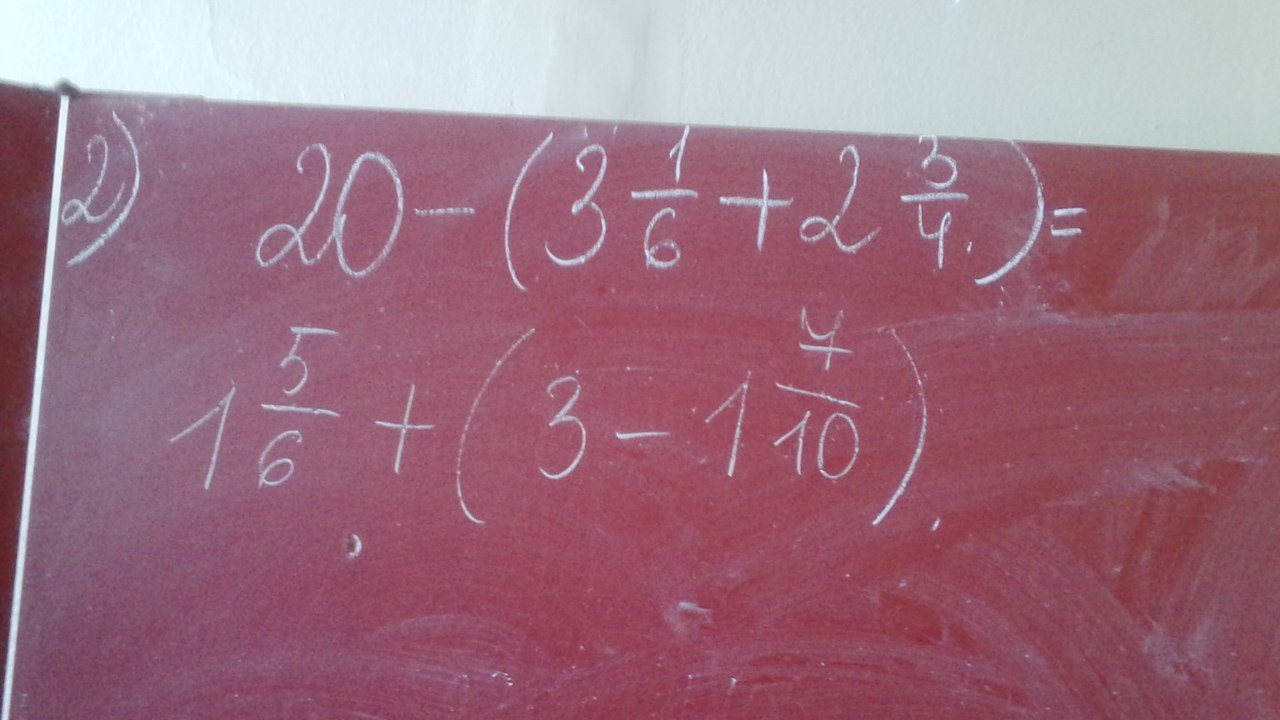 2) 20 - (3 1/6 + 2 3/4) =
1 5/6 + (3 - 1 7/10)